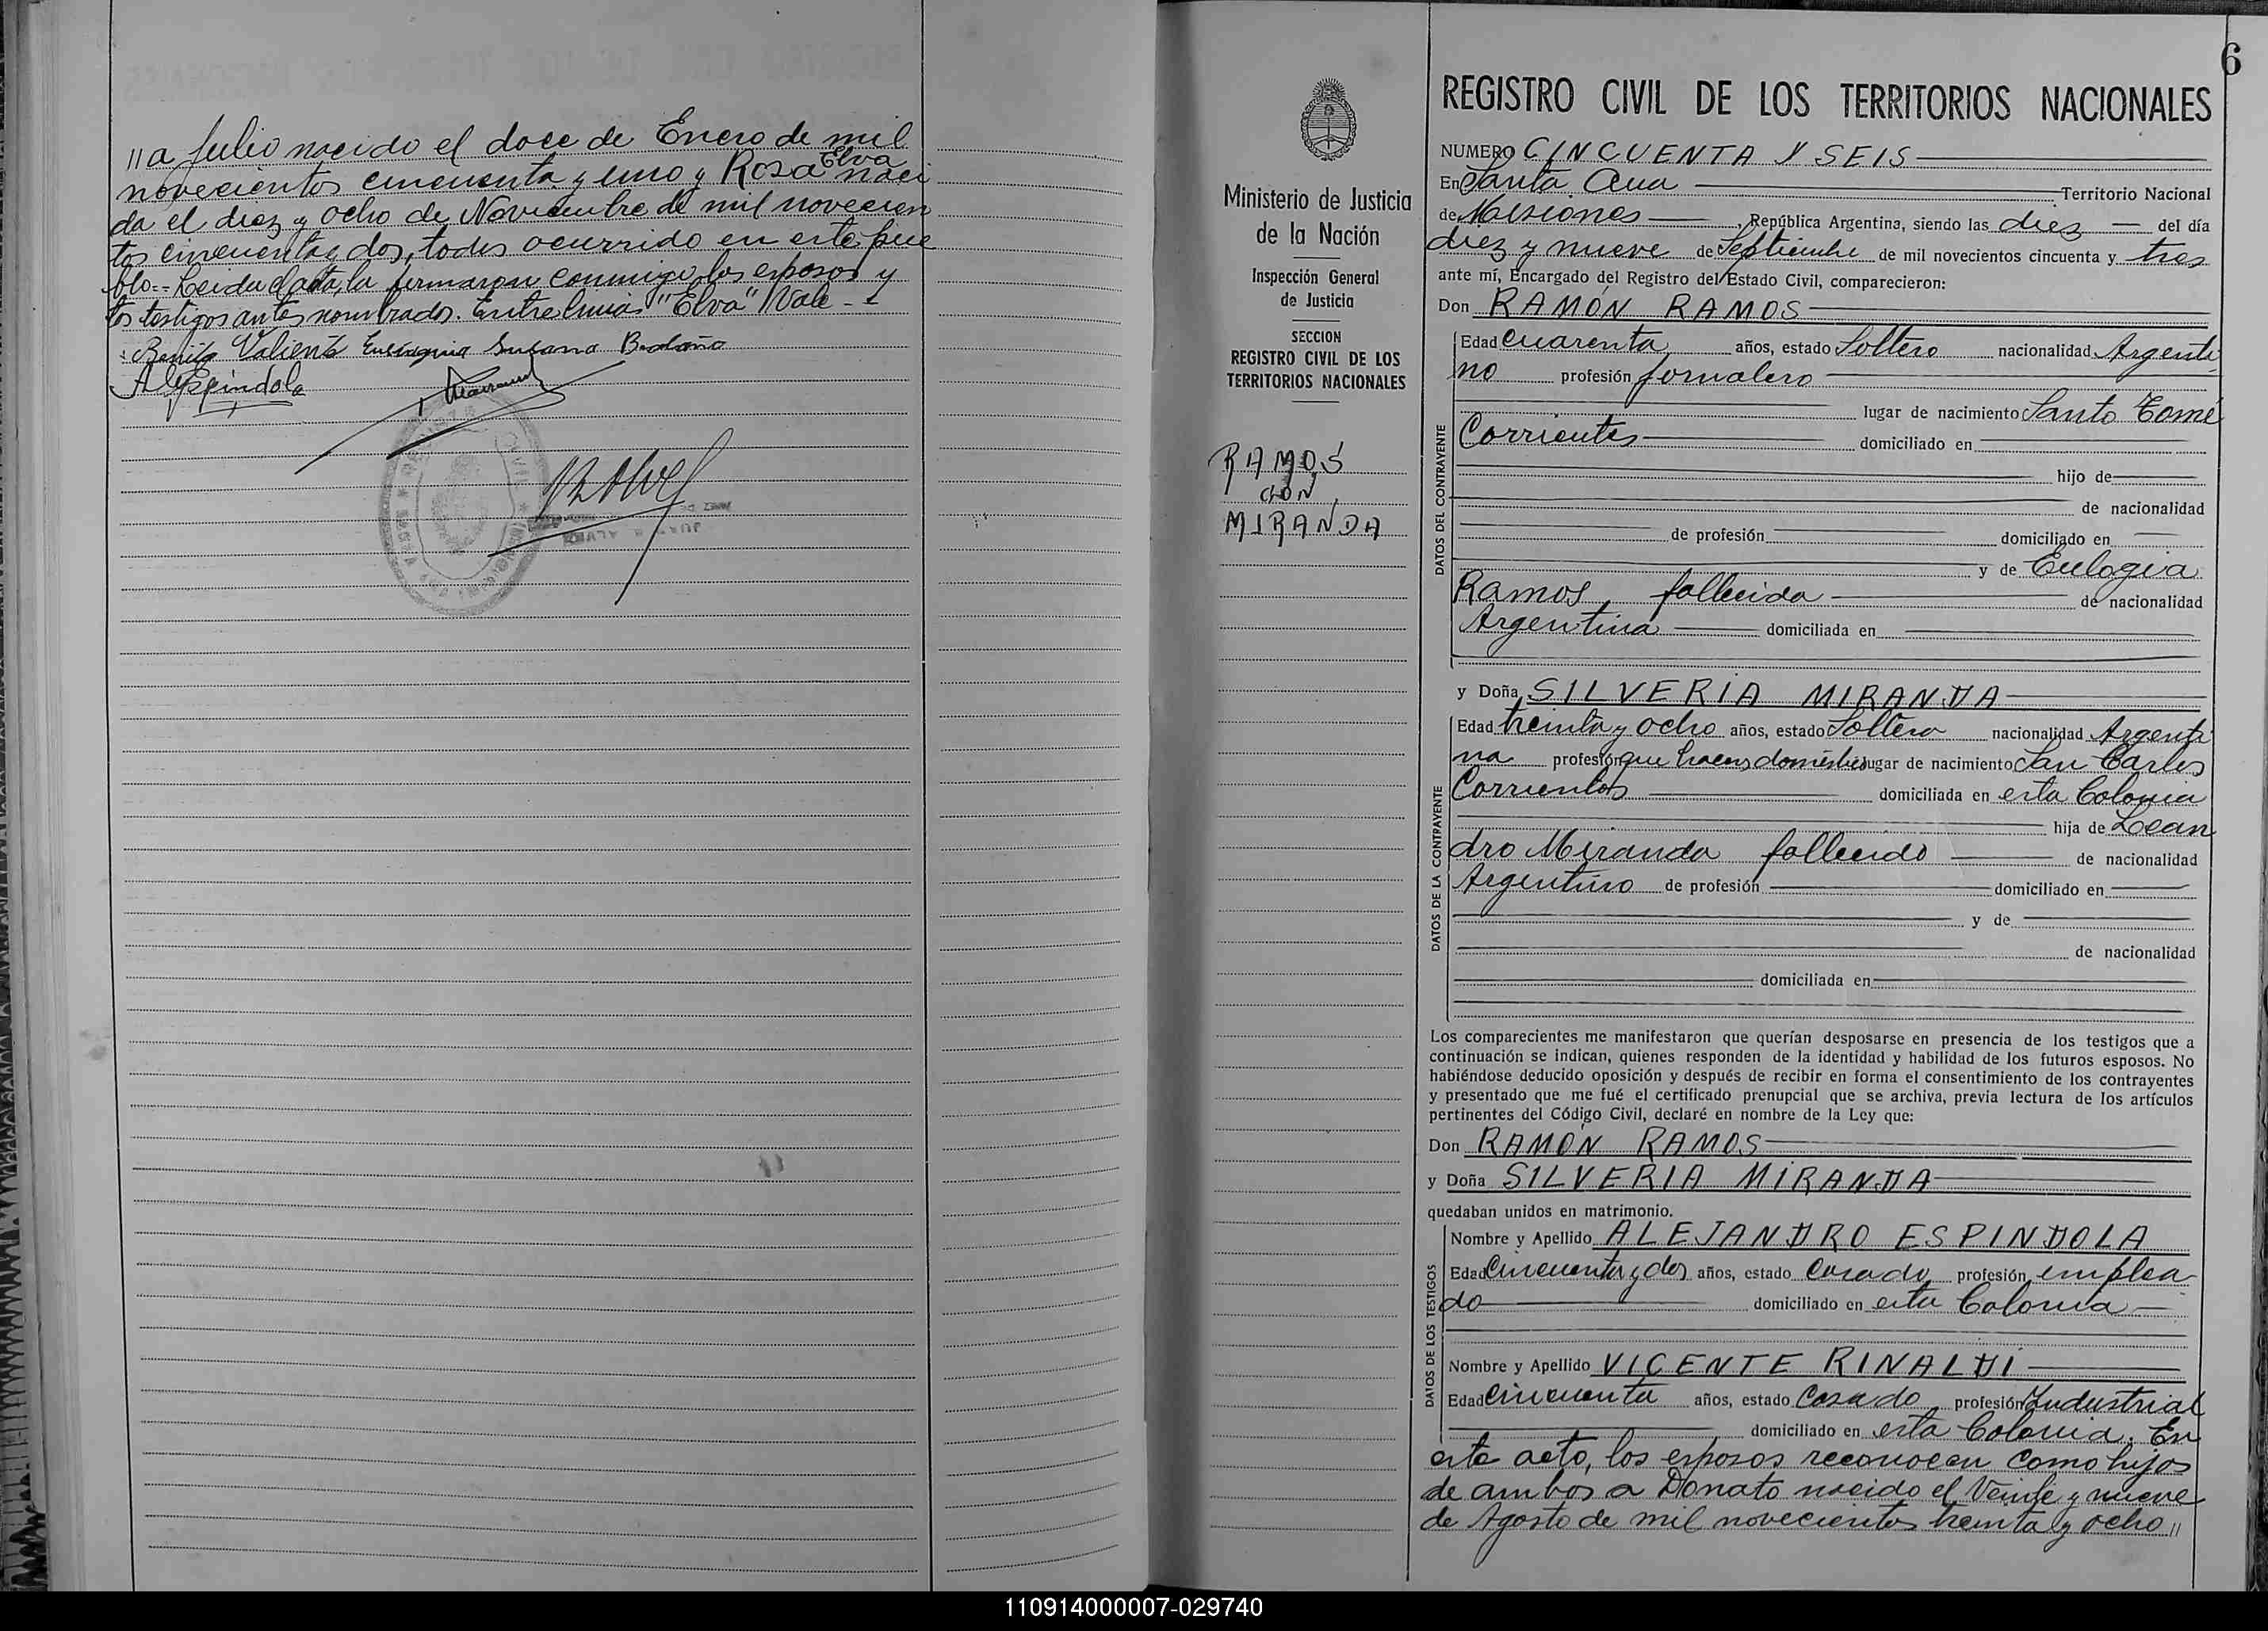 "a Julio nacido el doce de Enero de mil
novecientos cincuenta y uno y Rosa Elva naci
da el diez y ocho de Noviembre de mil novecien
tos cincuenta y dos, todos ocurrido en este pue
blo.- Leida el acta, la firmaron conmigo los esposos y
los testigos antes nombrados. Entre lineas "Elva" Vale -
Benito Valiente Eustaquia Susana Bedoña
A. Espindola
6
REGISTRO CIVIL DE LOS TERRITORIOS NACIONALES
Ministerio de Justicia
de la Nación
Inspección General
de Justicia
SECCION
REGISTRO CIVIL DE LOS
TERRITORIOS NACIONALES
RAMOS
CON
MIRANDA
NUMERO CINCUENTA Y SEIS
En Santa Ana Territorio Nacional
de Misiones, República Argentina, siendo las diez del día
diez y nueve de Septiembre de mil novecientos cincuenta y tres
ante mí, Encargado del Registro del Estado Civil, comparecieron:
Don RAMÓN RAMOS
DATOS DEL CONTRAYENTE
Edad cuarenta años, estado Soltero nacionalidad Argenti
no profesión jornalero
lugar de nacimiento Santo Tomé
Corrientes domiciliado en
hijo de
de nacionalidad
de profesión domiciliado en
y de Eulogia
Ramos, fallecida de nacionalidad
Argentina domiciliada en
y Doña SILVERIA MIRANDA
DATOS DE LA CONTRAYENTE
Edad treinta y ocho años, estado Soltera nacionalidad Argenti
na profesión que haceres domésticos lugar de nacimiento San Carlos
Corrientes domiciliada en esta Colonia
hija de Lean
dro Miranda fallecido de nacionalidad
Argentino de profesión domiciliado en
y de
de nacionalidad
domiciliada en
Los comparecientes me manifestaron que querían desposarse en presencia de los testigos que a
continuación se indican, quienes responden de la identidad y habilidad de los futuros esposos. No
habiéndose deducido oposición y después de recibir en forma el consentimiento de los contrayentes
y presentado que me fué el certificado prenupcial que se archiva, previa lectura de los artículos
pertinentes del Código Civil, declaré en nombre de la Ley que:
Don RAMÓN RAMOS
y Doña SILVERIA MIRANDA
quedaban unidos en matrimonio.
DATOS DE LOS TESTIGOS
Nombre y Apellido ALEJANDRO ESPINDOLA
Edad Cincuenta y dos años, estado Casado profesión emplea
do domiciliado en esta Colonia
Nombre y Apellido VICENTE RINALDI
Edad Cincuenta años, estado Casado profesión Industrial
domiciliado en esta Colonia. En
este acto, los esposos reconocen como hijos
de ambos a Donato nacido el Veinte y nueve
de Agosto de mil novecientos treinta y ocho"
110914000007-029740